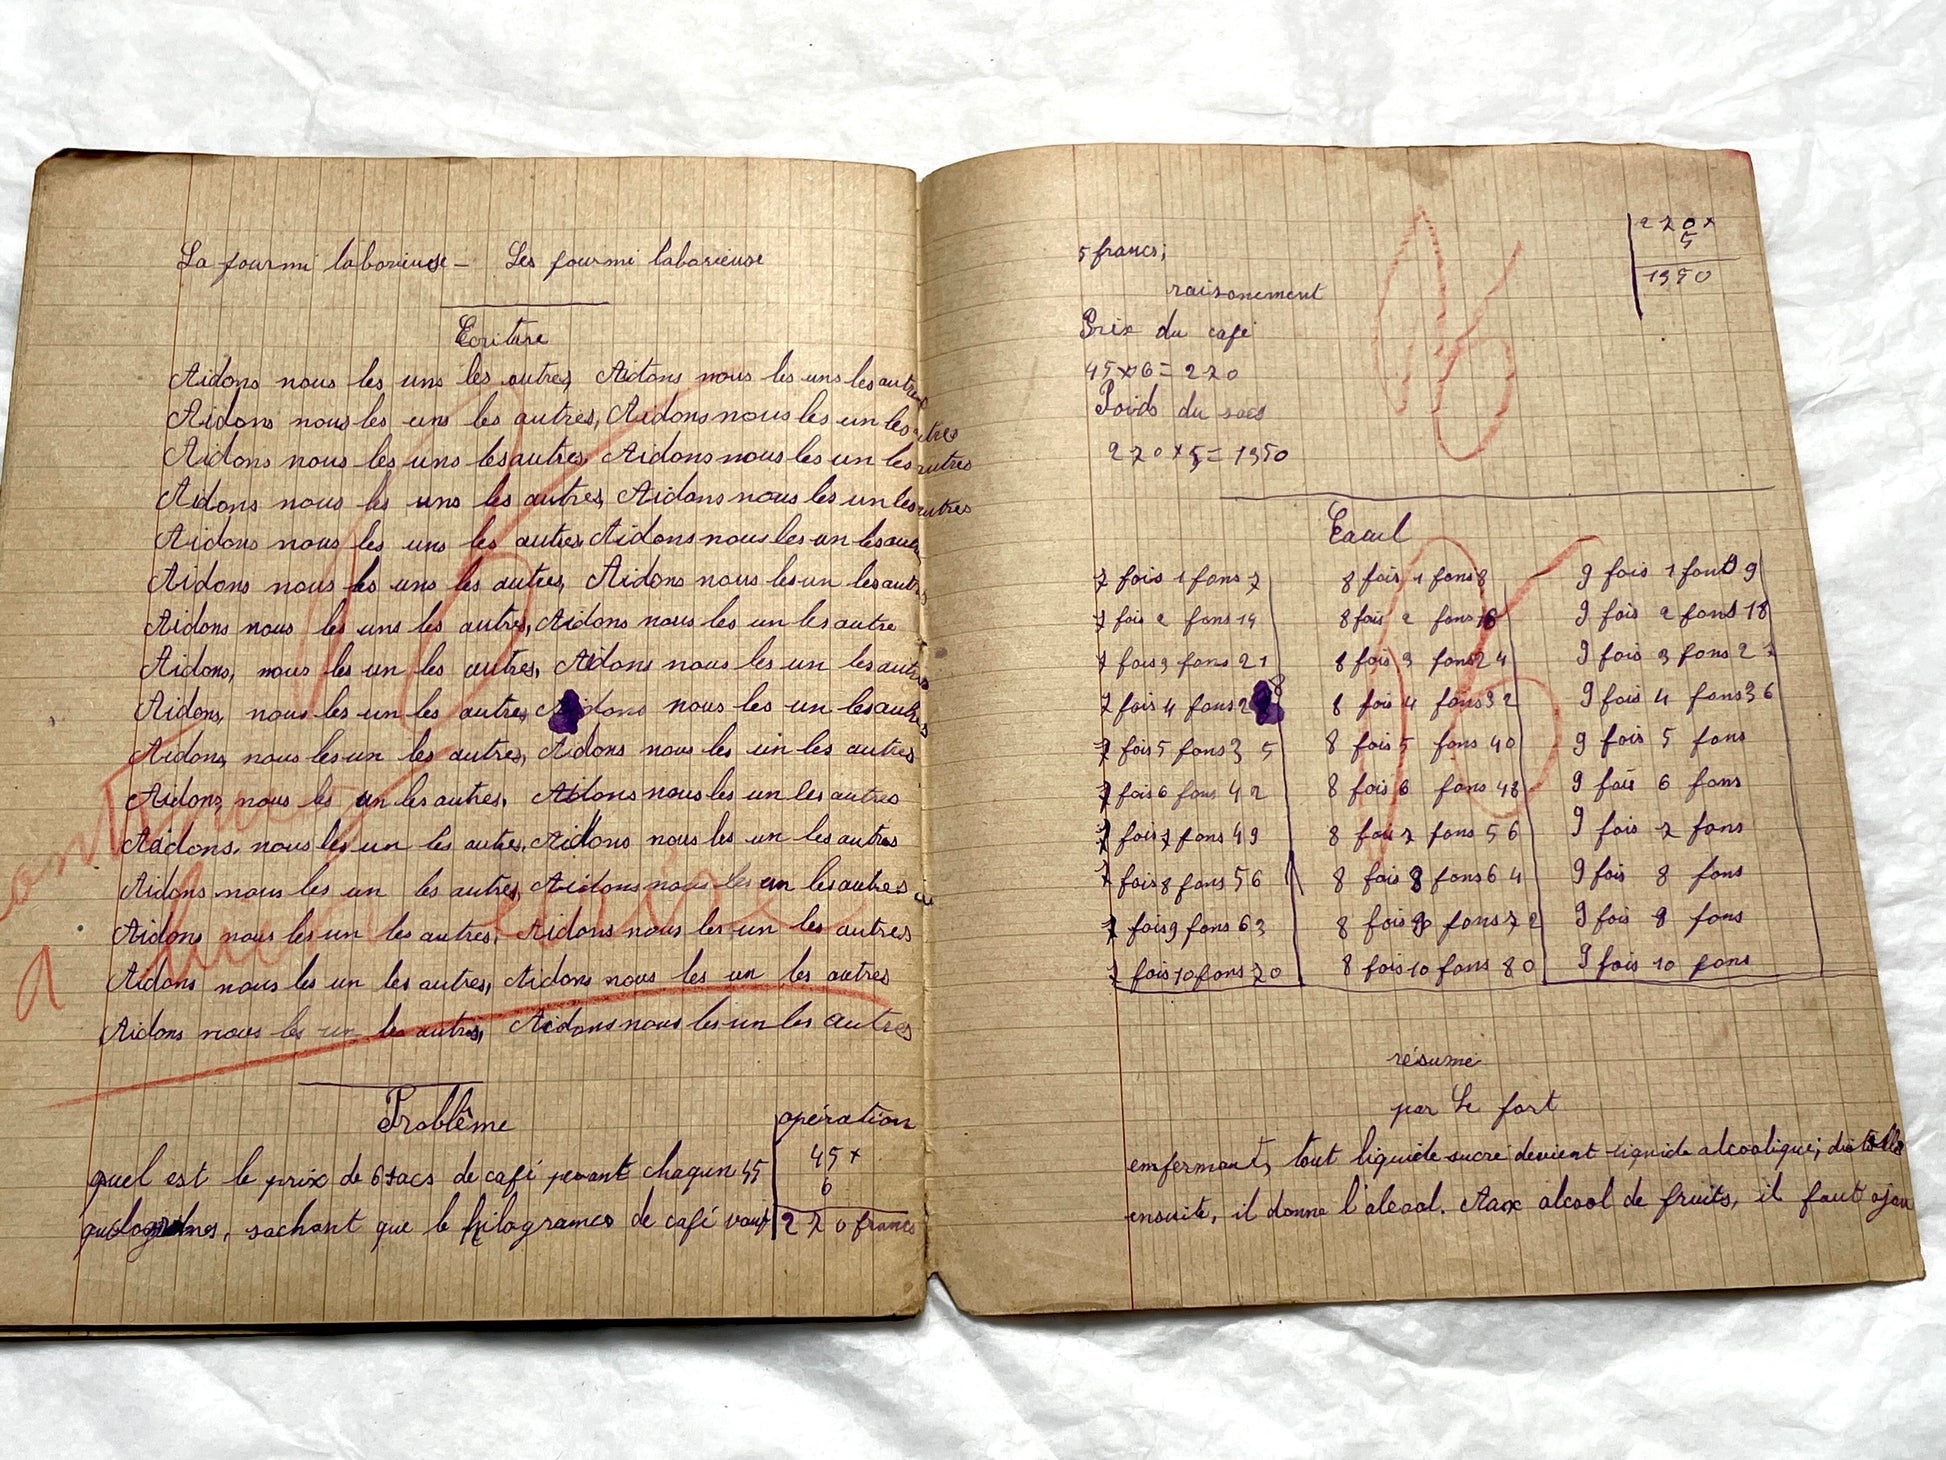 La fourmi laborieuse - Les fourmi laborieuse
Ecriture
Aidons nous les uns les autres, Aidons nous les uns les autres
Aidons nous les uns les autres, Aidons nous les un les autres
Aidons nous les uns les autres, Aidons nous les un les autres
Aidons nous les uns les autres, Aidons nous les un les autres
Aidons nous les uns les autres, Aidons nous les un les autres
Aidons nous les uns les autres, Aidons nous les un les autres
Aidons nous les uns les autres, Aidons nous les un les autre
Aidons, nous les un les autres, Aidons nous les un les autres
Aidons, nous les un les autres, Aidons nous les un les autres
Aidons, nous les un les autres, Aidons nous les un les autres
Aidons, nous les un les autres, Aidons nous les un les autres
Aidons, nous les un les autres, Aidons nous les un les autres
Aidons nous les un les autres, Aidons nous les un les autres
Aidons nous les un les autres, Aidons nous les un les autres
Aidons nous les un les autres, Aidons nous les un les autres
Aidons nous les un les autres, Aidons nous les un les autres
a
Problème
quel est le prix de 6 sacs de café pesant chaqun 45
sachant que le kilogrames de café vaut
opération
45 x
6
270 francs
5 francs;
270 x
5
1350
raisonement
Prix du café
45 x 6 = 270
Poids du sacs
270 x 5 = 1350
7 fois 1 fons 7
7 fois 2 fons 14
7 fois 3 fons 21
7 fois 4 fons 28
7 fois 5 fons 35
7 fois 6 fons 42
7 fois 7 fons 49
7 fois 8 fons 56
7 fois 9 fons 63
7 fois 10 fons 70
8 fois 1 fons 8
8 fois 2 fons 16
8 fois 3 fons 24
8 fois 4 fons 32
8 fois 5 fons 40
8 fois 6 fons 48
8 fois 7 fons 56
8 fois 8 fons 64
8 fois 9 fons 72
8 fois 10 fons 80
9 fois 1 font 9
9 fois 2 fons 18
9 fois 3 fons 27
9 fois 4 fons 36
9 fois 5 fons
9 fois 6 fons
9 fois 7 fons
9 fois 8 fons
9 fois 9 fons
9 fois 10 fons
résumé
par Le fort
enfermant, tout liquide sucré devient liquide alcoolique; distillé
ensuite, il donne l'alcool. Aax alcool de fruits, il faut ajou